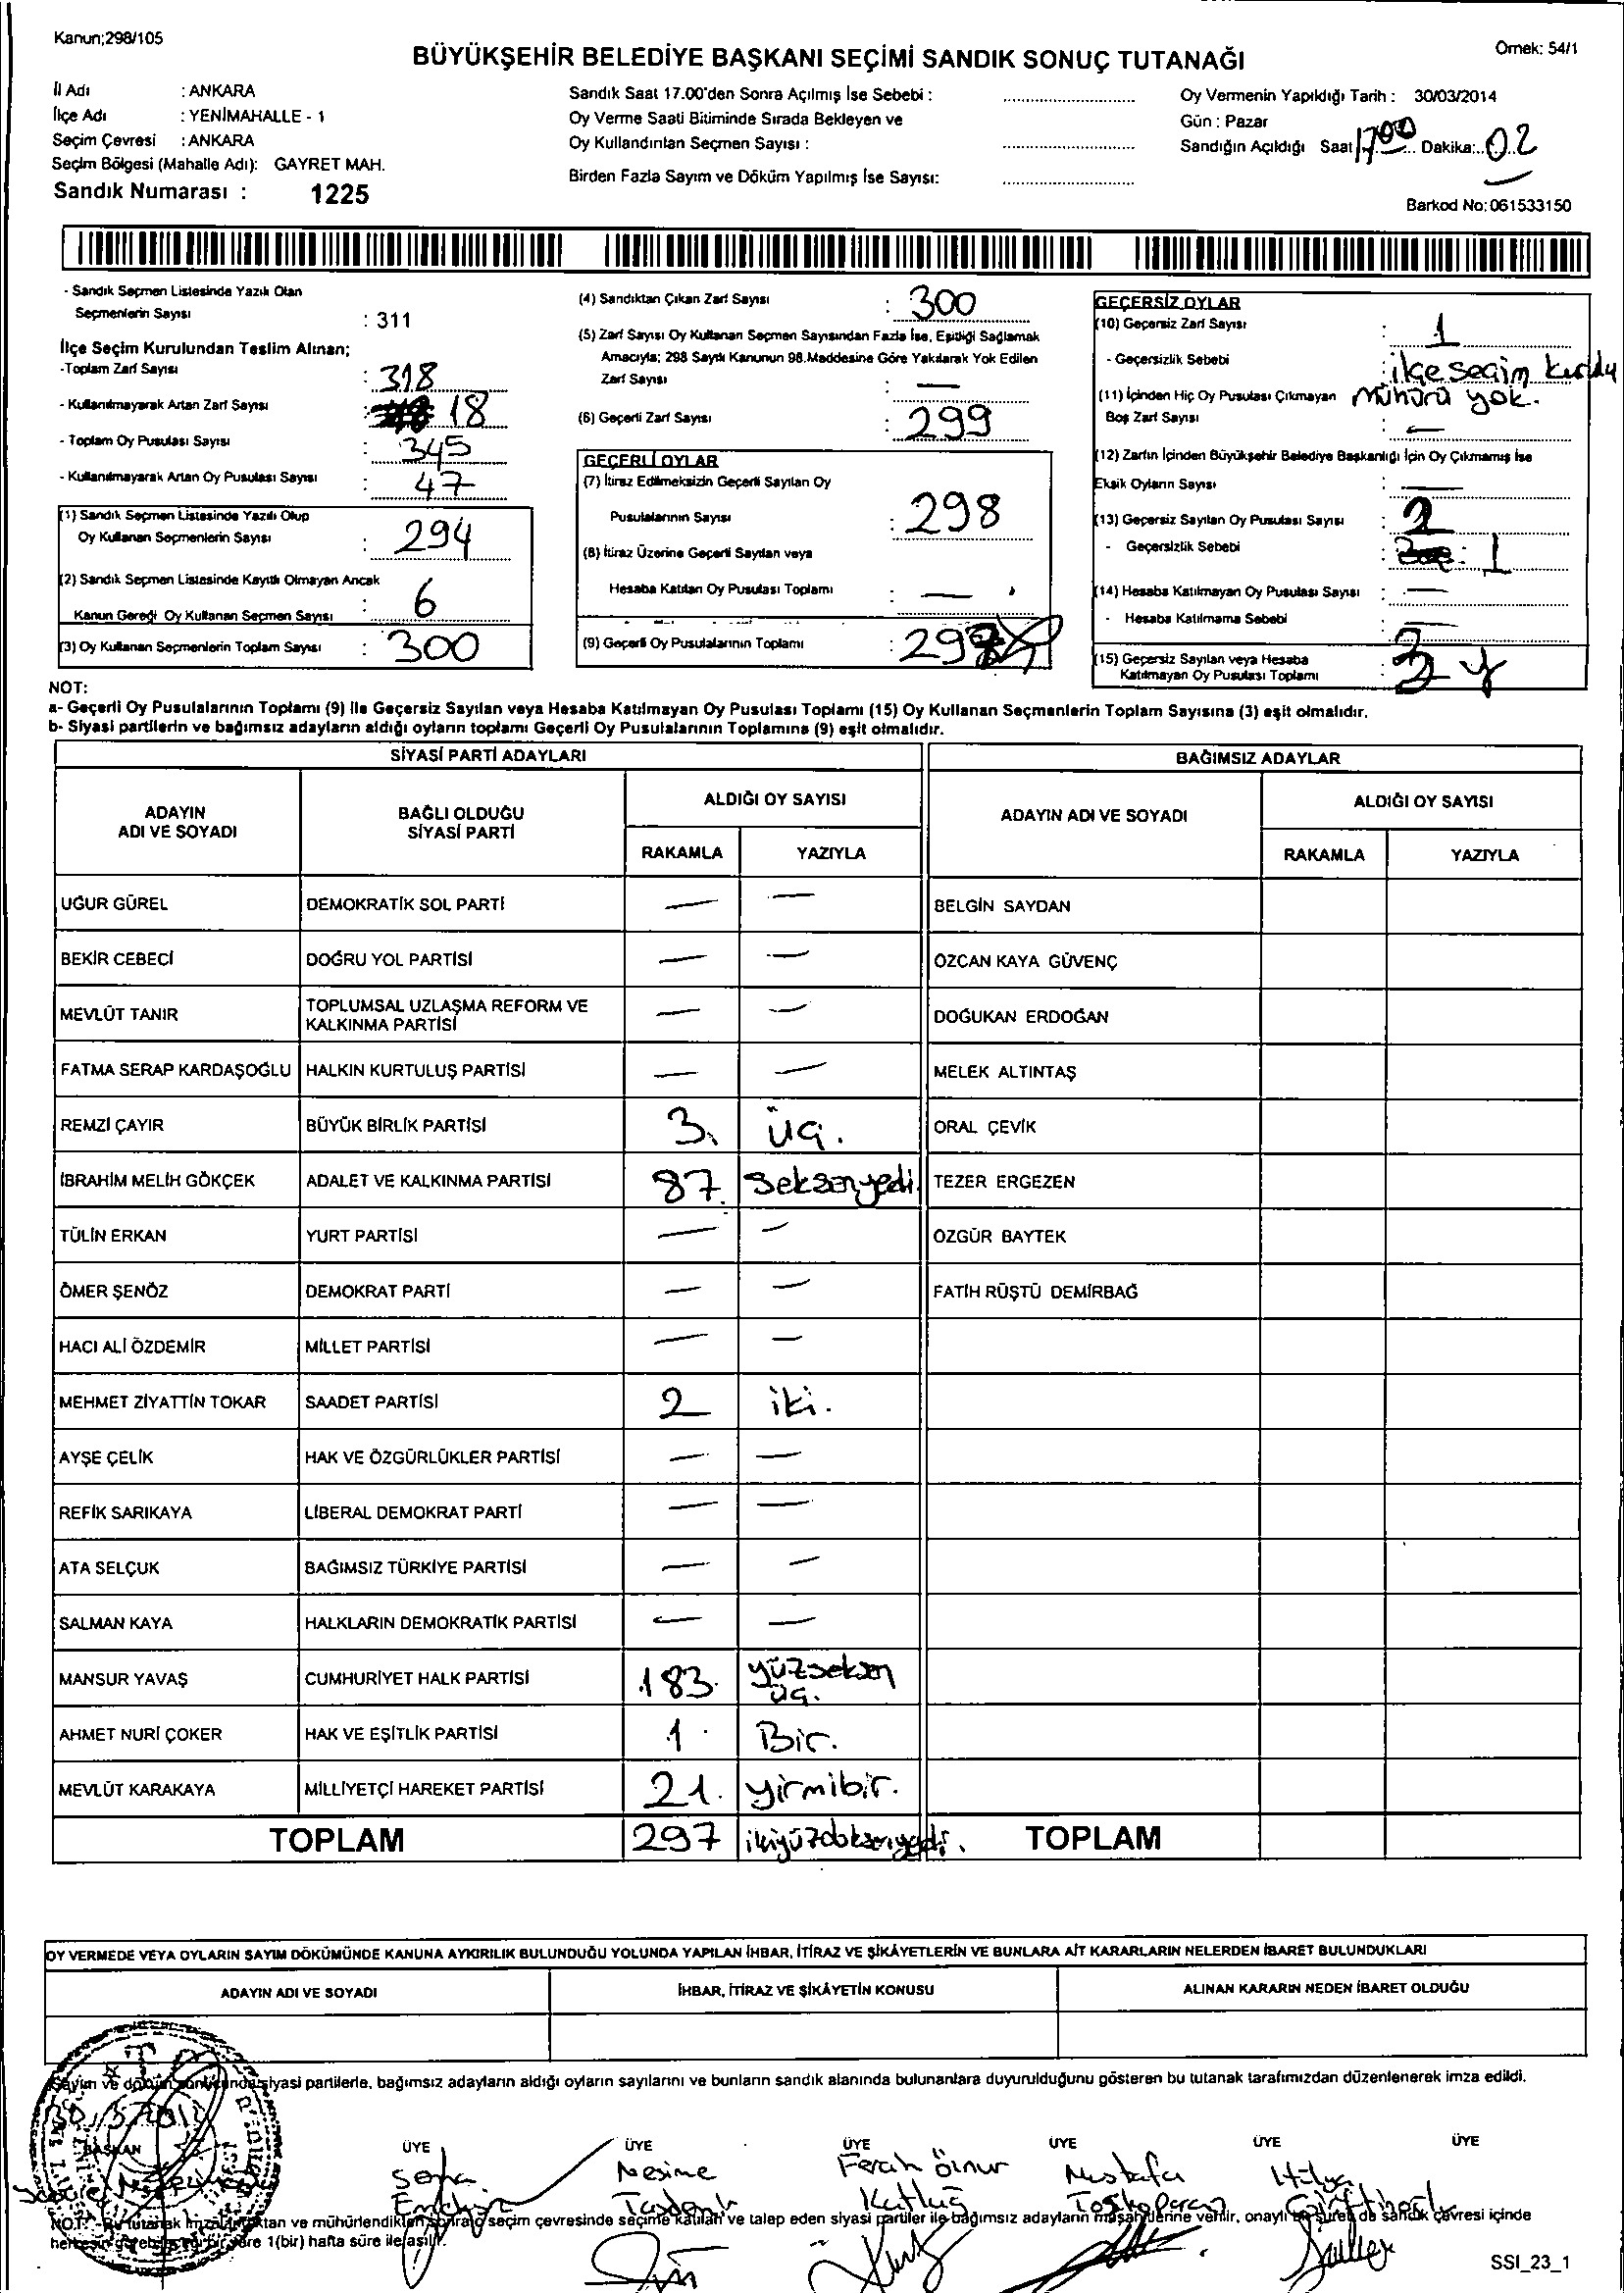 Kanun;298/105
Örnek: 54/1
BÜYÜKŞEHİR BELEDİYE BAŞKANI SEÇİMİ SANDIK SONUÇ TUTANAĞI
İl Adı : ANKARA
İlçe Adı : YENİMAHALLE - 1
Seçim Çevresi : ANKARA
Seçim Bölgesi (Mahalle Adı): GAYRET MAH.
Sandık Numarası : 1225
Sandık Saat 17.00'den Sonra Açılmış İse Sebebi :
Oy Verme Saati Bitiminde Sırada Bekleyen ve
Oy Kullandırılan Seçmen Sayısı :
Birden Fazla Sayım ve Döküm Yapılmış İse Sayısı:
Oy Vermenin Yapıldığı Tarih : 30/03/2014
Gün : Pazar
Sandığın Açıldığı Saat 17.00 Dakika: 02
Barkod No:061533150
- Sandık Seçmen Listesinde Yazılı Olan
Seçmenlerin Sayısı : 311
İlçe Seçim Kurulundan Teslim Alınan;
-Toplam Zarf Sayısı : 318
- Kullanılmayarak Artan Zarf Sayısı : 18
- Toplam Oy Pusulası Sayısı : 345
- Kullanılmayarak Artan Oy Pusulası Sayısı : 47
(1) Sandık Seçmen Listesinde Yazılı Olup
Oy Kullanan Seçmenlerin Sayısı : 294
(2) Sandık Seçmen Listesinde Kayıtlı Olmayan Ancak
Kanun Gereği Oy Kullanan Seçmen Sayısı : 6
(3) Oy Kullanan Seçmenlerin Toplam Sayısı : 300
(4) Sandıktan Çıkan Zarf Sayısı : 300
(5) Zarf Sayısı Oy Kullanan Seçmen Sayısından Fazla İse, Eşitliği Sağlamak
Amacıyla; 298 Sayılı Kanunun 98.Maddesine Göre Yakılarak Yok Edilen
Zarf Sayısı : —
(6) Geçerli Zarf Sayısı : 299
GEÇERLİ OYLAR
(7) İtiraz Edilmeksizin Geçerli Sayılan Oy
Pusulalarının Sayısı : 298
(8) İtiraz Üzerine Geçerli Sayılan veya
Hesaba Katılan Oy Pusulası Toplamı : —
(9) Geçerli Oy Pusulalarının Toplamı :
GEÇERSİZ OYLAR
(10) Geçersiz Zarf Sayısı : 1
- Geçersizlik Sebebi : ilçe seçim kurulu
mühürü yok.
(11) İçinden Hiç Oy Pusulası Çıkmayan
Boş Zarf Sayısı : —
(12) Zarfın İçinden Büyükşehir Belediye Başkanlığı İçin Oy Çıkmamış İse
Eksik Oyların Sayısı : —
(13) Geçersiz Sayılan Oy Pusulası Sayısı : 2
- Geçersizlik Sebebi :
(14) Hesaba Katılmayan Oy Pusulası Sayısı : —
- Hesaba Katılmama Sebebi : —
(15) Geçersiz Sayılan veya Hesaba
Katılmayan Oy Pusulası Toplamı :
NOT:
a- Geçerli Oy Pusulalarının Toplamı (9) İle Geçersiz Sayılan veya Hesaba Katılmayan Oy Pusulası Toplamı (15) Oy Kullanan Seçmenlerin Toplam Sayısına (3) eşit olmalıdır.
b- Siyasi partilerin ve bağımsız adayların aldığı oyların toplamı Geçerli Oy Pusulalarının Toplamına (9) eşit olmalıdır.
SİYASİ PARTİ ADAYLARI
BAĞIMSIZ ADAYLAR
ADAYIN
ADI VE SOYADI
BAĞLI OLDUĞU
SİYASİ PARTİ
ALDIĞI OY SAYISI
ADAYIN ADI VE SOYADI
ALDIĞI OY SAYISI
RAKAMLA YAZIYLA
RAKAMLA YAZIYLA
UĞUR GÜREL DEMOKRATİK SOL PARTİ — — BELGİN SAYDAN
BEKİR CEBECİ DOĞRU YOL PARTİSİ — — ÖZCAN KAYA GÜVENÇ
MEVLÜT TANIR TOPLUMSAL UZLAŞMA REFORM VE
KALKINMA PARTİSİ — — DOĞUKAN ERDOĞAN
FATMA SERAP KARDAŞOĞLU HALKIN KURTULUŞ PARTİSİ — — MELEK ALTINTAŞ
REMZİ ÇAYIR BÜYÜK BİRLİK PARTİSİ 3. üç. ORAL ÇEVİK
İBRAHİM MELİH GÖKÇEK ADALET VE KALKINMA PARTİSİ 87. seksenyedi. TEZER ERGEZEN
TÜLİN ERKAN YURT PARTİSİ — — ÖZGÜR BAYTEK
ÖMER ŞENÖZ DEMOKRAT PARTİ — — FATİH RÜŞTÜ DEMİRBAĞ
HACI ALİ ÖZDEMİR MİLLET PARTİSİ — —
MEHMET ZİYATTİN TOKAR SAADET PARTİSİ 2 iki.
AYŞE ÇELİK HAK VE ÖZGÜRLÜKLER PARTİSİ — —
REFİK SARIKAYA LİBERAL DEMOKRAT PARTİ — —
ATA SELÇUK BAĞIMSIZ TÜRKİYE PARTİSİ — —
SALMAN KAYA HALKLARIN DEMOKRATİK PARTİSİ — —
MANSUR YAVAŞ CUMHURİYET HALK PARTİSİ 183. yüzseksen
üç.
AHMET NURİ ÇOKER HAK VE EŞİTLİK PARTİSİ 1. Bir.
MEVLÜT KARAKAYA MİLLİYETÇİ HAREKET PARTİSİ 21. yirmibir.
TOPLAM 297 ikiyüzdoksanyedi. TOPLAM
OY VERMEDE VEYA OYLARIN SAYIM DÖKÜMÜNDE KANUNA AYKIRILIK BULUNDUĞU YOLUNDA YAPILAN İHBAR, İTİRAZ VE ŞİKÂYETLERİN VE BUNLARA AİT KARARLARIN NELERDEN İBARET BULUNDUKLARI
ADAYIN ADI VE SOYADI İHBAR, İTİRAZ VE ŞİKÂYETİN KONUSU ALINAN KARARIN NEDEN İBARET OLDUĞU
Sayım ve döküm sonucunda siyasi partilerle, bağımsız adayların aldığı oyların sayılarını ve bunların sandık alanında bulunanlara duyurulduğunu gösteren bu tutanak tarafımızdan düzenlenerek imza edildi.
BAŞKAN ÜYE ÜYE ÜYE ÜYE ÜYE ÜYE
Nesime Ferah Öznur Mustafa Hülya
Kutluğ Toskoparan
NOT: - Bu tutanak imzalandıktan ve mühürlendikten sonra o seçim çevresinde seçime katılan ve talep eden siyasi partiler ile bağımsız adayların müşahitlerine verilir, onaylı bir sureti de sandık çevresi içinde
herkesin görebileceği bir yere 1(bir) hafta süre ile asılır.
SSI_23_1